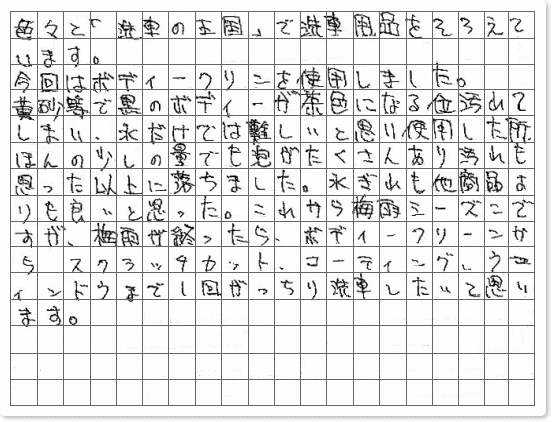 色々と「洗車の王国」で洗車用品をそろえて
います。
今回はボディークリンを使用しました。
黄砂等で黒のボディーが茶色になる位汚れて
しまい、水だけでは難しいと思い使用した所
ほんの少しの量でも泡がたくさんあり汚れも
思った以上に落ちました。水ぎれも他商品よ
りも良いと思った。これから梅雨シーズンで
すが、梅雨が終ったら、ボディークリーンか
ら、スクラッチカット、コーティング、ウィ
ィンドウまで1回がっちり洗車したいと思い
ます。